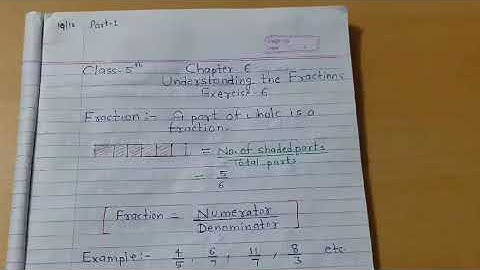 19/12 Part-1
Class-5th Chapter 6
Understanding the Fractions
Exercise-6
Fraction :- A part of whole is a
fraction.
= No. of shaded parts
Total parts
= 5
6
[ Fraction = Numerator
Denominator ]
Example:- 4/5, 6/7, 11/7, 8/3 etc